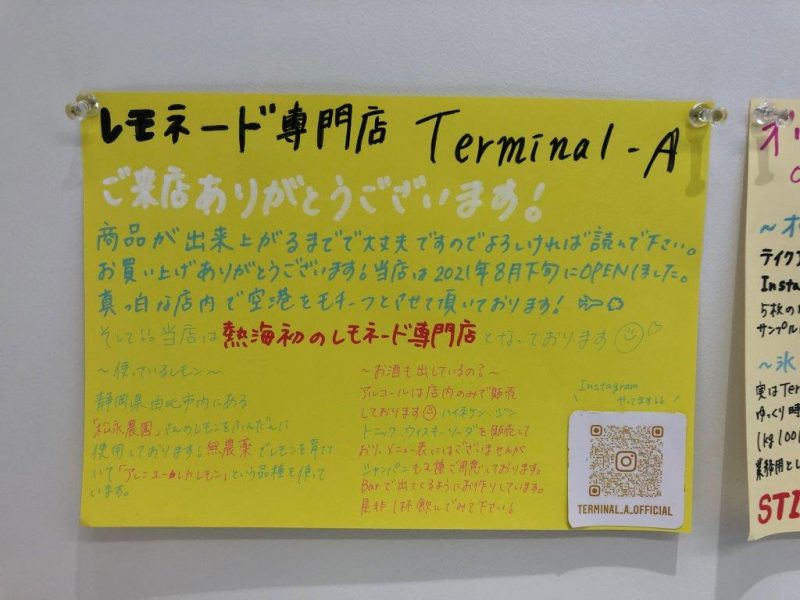 レモネード専門店 Terminal-A
ご来店ありがとうございます!
商品が出来上がるまでで大丈夫ですのでよろしければ読んで下さい。
お買い上げありがとうございます。当店は2021年8月下旬にOPENしました。
真っ白な店内で空港をモチーフとさせて頂いております!
そして当店は熱海初のレモネード専門店となっております
~使っているレモン~
静岡県由比市内にある
「松永農園」さんのレモンをふんだんに
使用しております。無農薬でレモンを育て
ていて「アレンユーレカレモン」という品種を使って
います。
~お酒も出しているの?~
アルコールは店内のみで販売
しております ハイネケン、ジン
トニック、ウィスキーソーダを販売して
おり、メニュー表にはございませんが
シャンパンも2種ご用意しております。
Barで出てくるようにお作りしています。
是非1杯飲んでみて下さい。
Instagram
やってます
TERMINAL_A_OFFICIAL
~オ
テイク
Insta
5枚の
サンプル
~氷
実はTer
ゆっくり時
(kg100
業務用とし